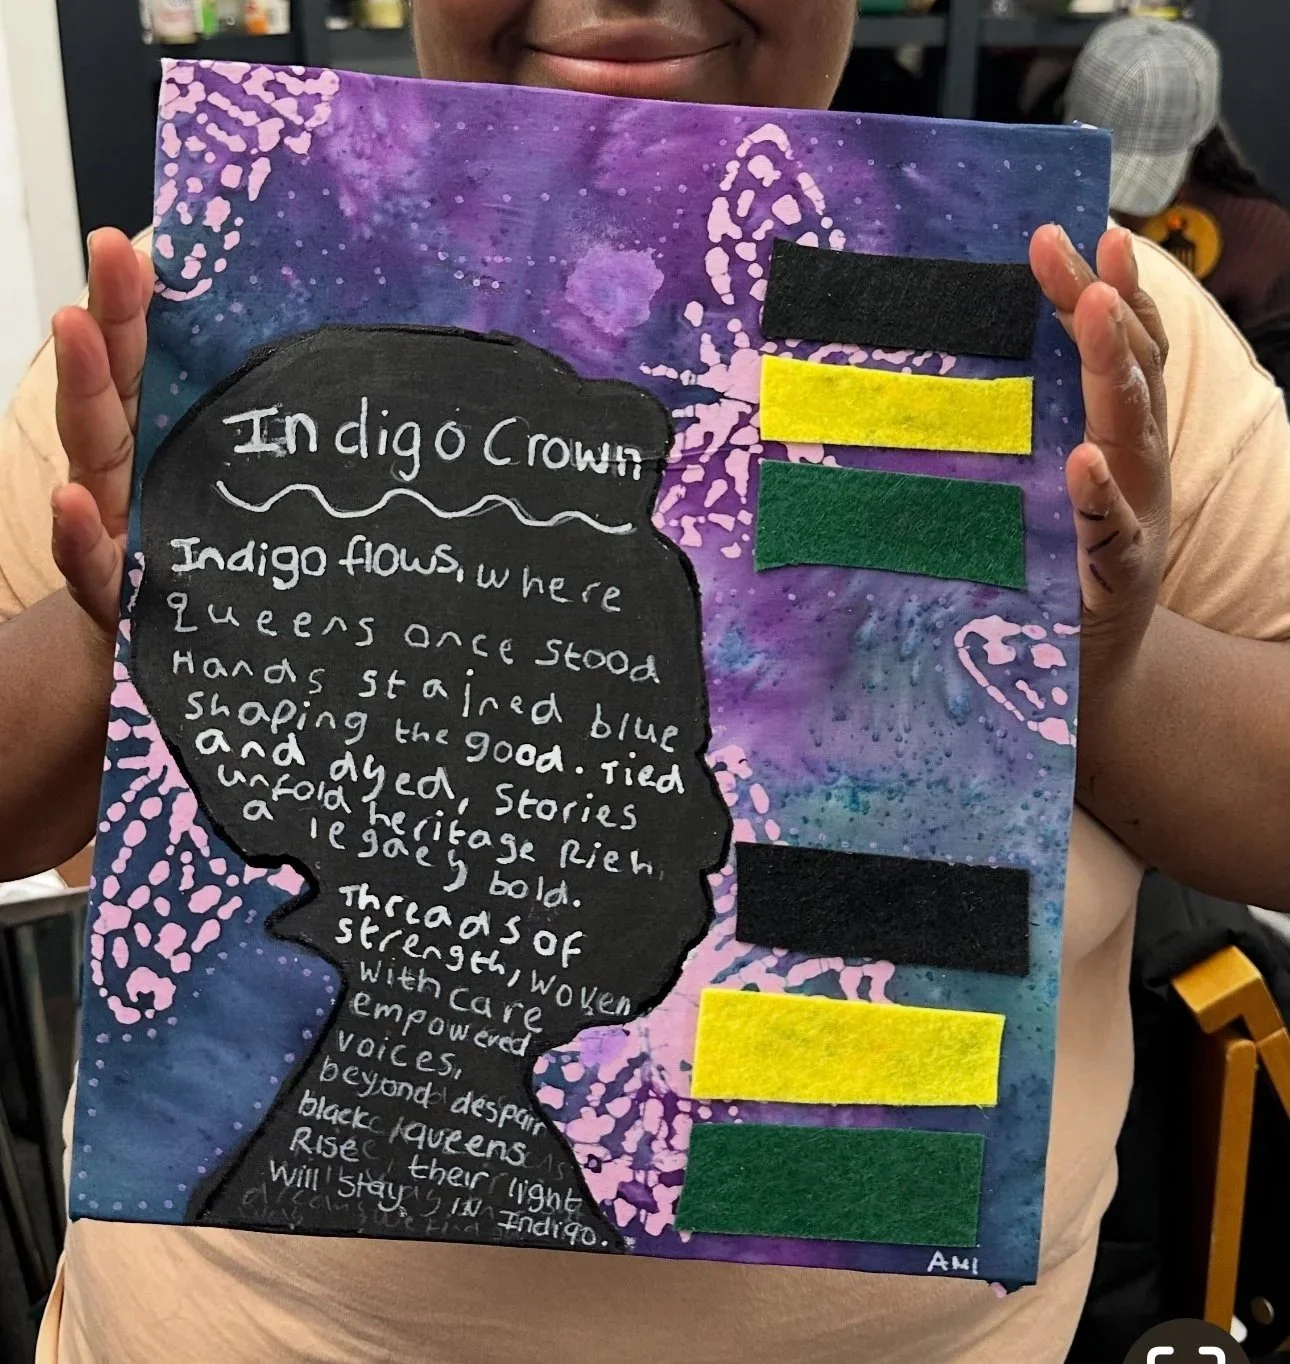 Indigo Crown
Indigo flows, where
queens once stood
Hands stained blue
shaping the good. Tied
and dyed, Stories
unfold heritage Rich,
a legacy bold.
Threads of
strength, woven
with care
empowered
voices,
beyond despair
black queens
Rise their light
will stay, IN
Indigo.
AMI